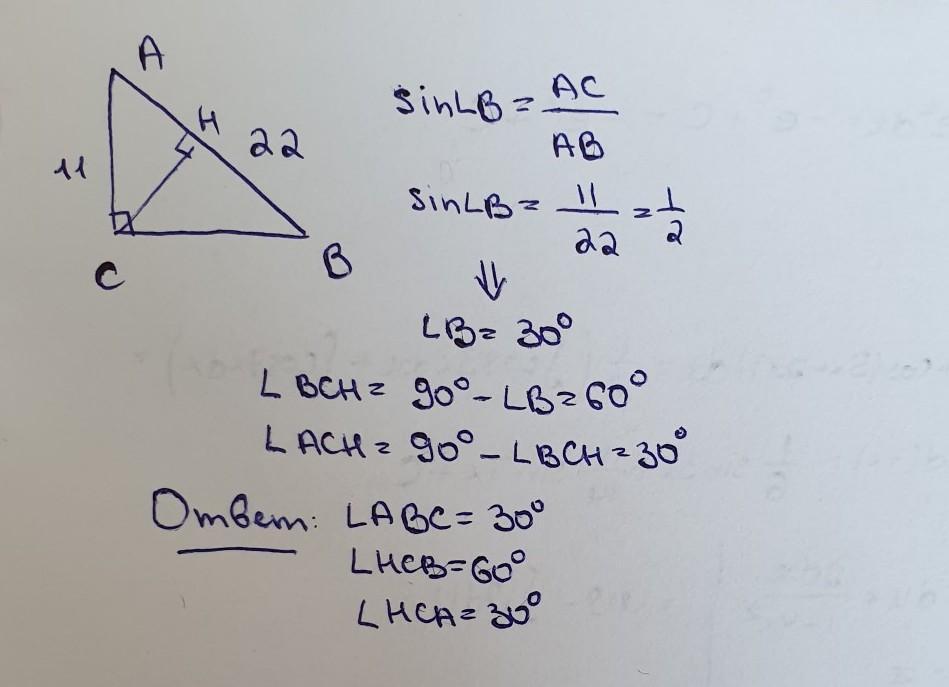 A
H
22
11
C
B
sin∠B = AC/AB
sin∠B = 11/22 = 1/2
⇓
∠B = 30°
∠BCH = 90° - ∠B = 60°
∠ACH = 90° - ∠BCH = 30°
Ответ: ∠ABC = 30°
∠HCB = 60°
∠HCA = 30°